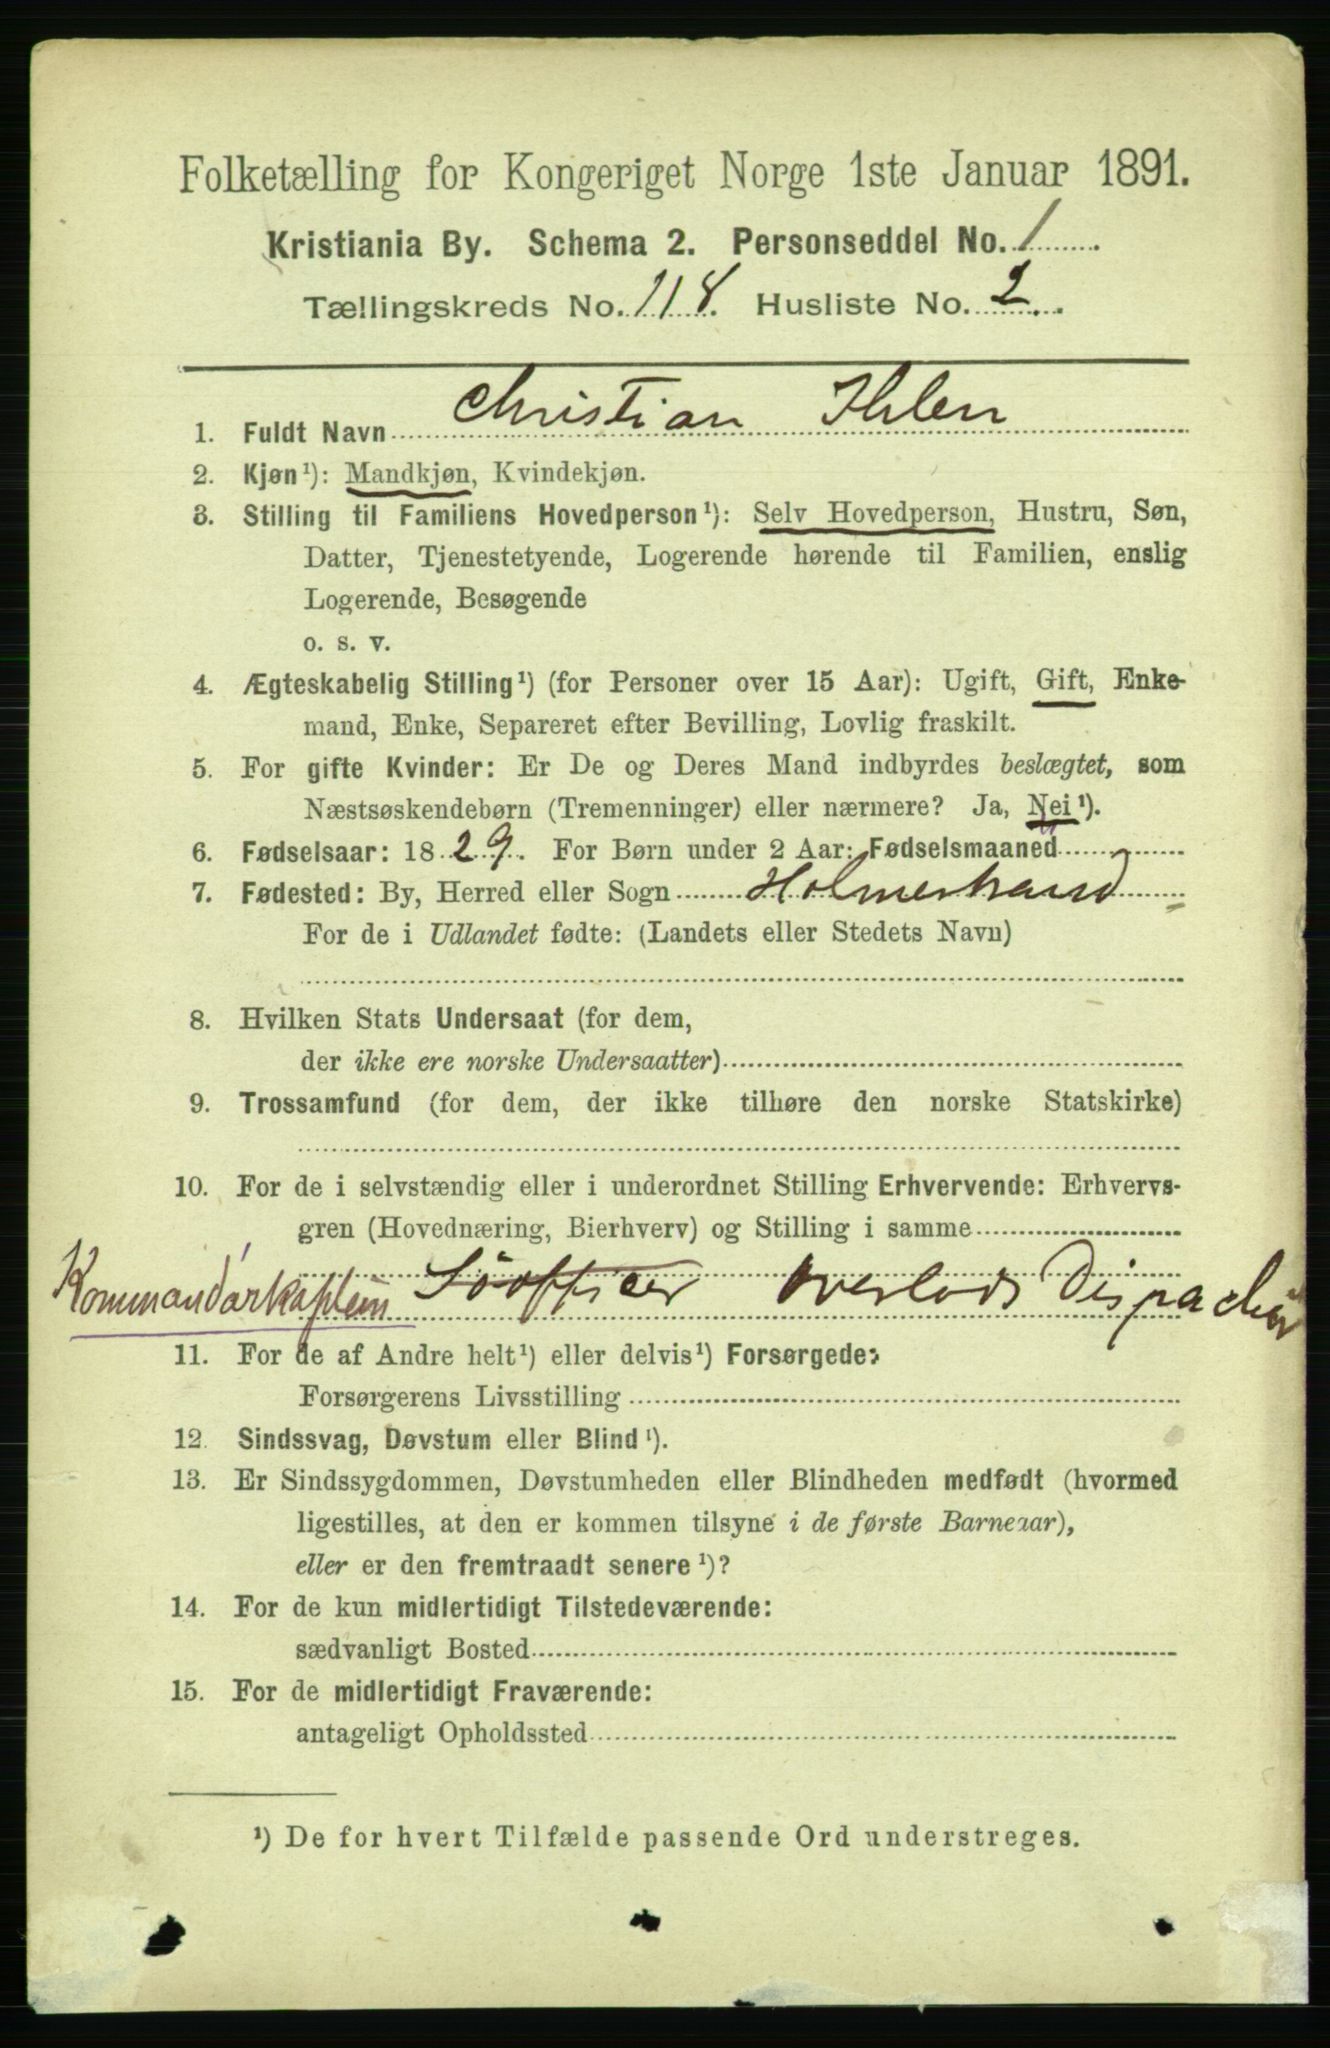 Folketælling for Kongeriget Norge 1ste Januar 1891.
Kristiania By. Schema 2. Personseddel No. 1
Tællingskreds No. 118. Husliste No. 2
1. Fuldt Navn Christian Ihlen
2. Kjøn¹): Mandkjøn, Kvindekjøn.
3. Stilling til Familiens Hovedperson¹): Selv Hovedperson, Hustru, Søn,
Datter, Tjenestetyende, Logerende hørende til Familien, enslig
Logerende, Besøgende
o. s. v.
4. Ægteskabelig Stilling¹) (for Personer over 15 Aar): Ugift, Gift, Enke-
mand, Enke, Separeret efter Bevilling, Lovlig fraskilt.
5. For gifte Kvinder: Er De og Deres Mand indbyrdes beslægtet, som
Næstsøskendebørn (Tremenninger) eller nærmere? Ja, Nei¹).
6. Fødselsaar: 1829. For Børn under 2 Aar: Fødselsmaaned
7. Fødested: By, Herred eller Sogn Holmestrand
For de i Udlandet fødte: (Landets eller Stedets Navn)
8. Hvilken Stats Undersaat (for dem,
der ikke ere norske Undersaatter)
9. Trossamfund (for dem, der ikke tilhøre den norske Statskirke)
10. For de i selvstændig eller i underordnet Stilling Erhvervende: Erhvervs-
gren (Hovednæring, Bierhverv) og Stilling i samme
Kommandørkaptein Söofficer Overlods Dispachör
11. For de af Andre helt¹) eller delvis¹) Forsørgede:
Forsørgerens Livsstilling
12. Sindssvag, Døvstum eller Blind¹).
13. Er Sindssygdommen, Døvstumheden eller Blindheden medfødt (hvormed
ligestilles, at den er kommen tilsyne i de første Barneaar),
eller er den fremtraadt senere¹)?
14. For de kun midlertidigt Tilstedeværende:
sædvanligt Bosted
15. For de midlertidigt Fraværende:
antageligt Opholdssted
¹) De for hvert Tilfælde passende Ord understreges.